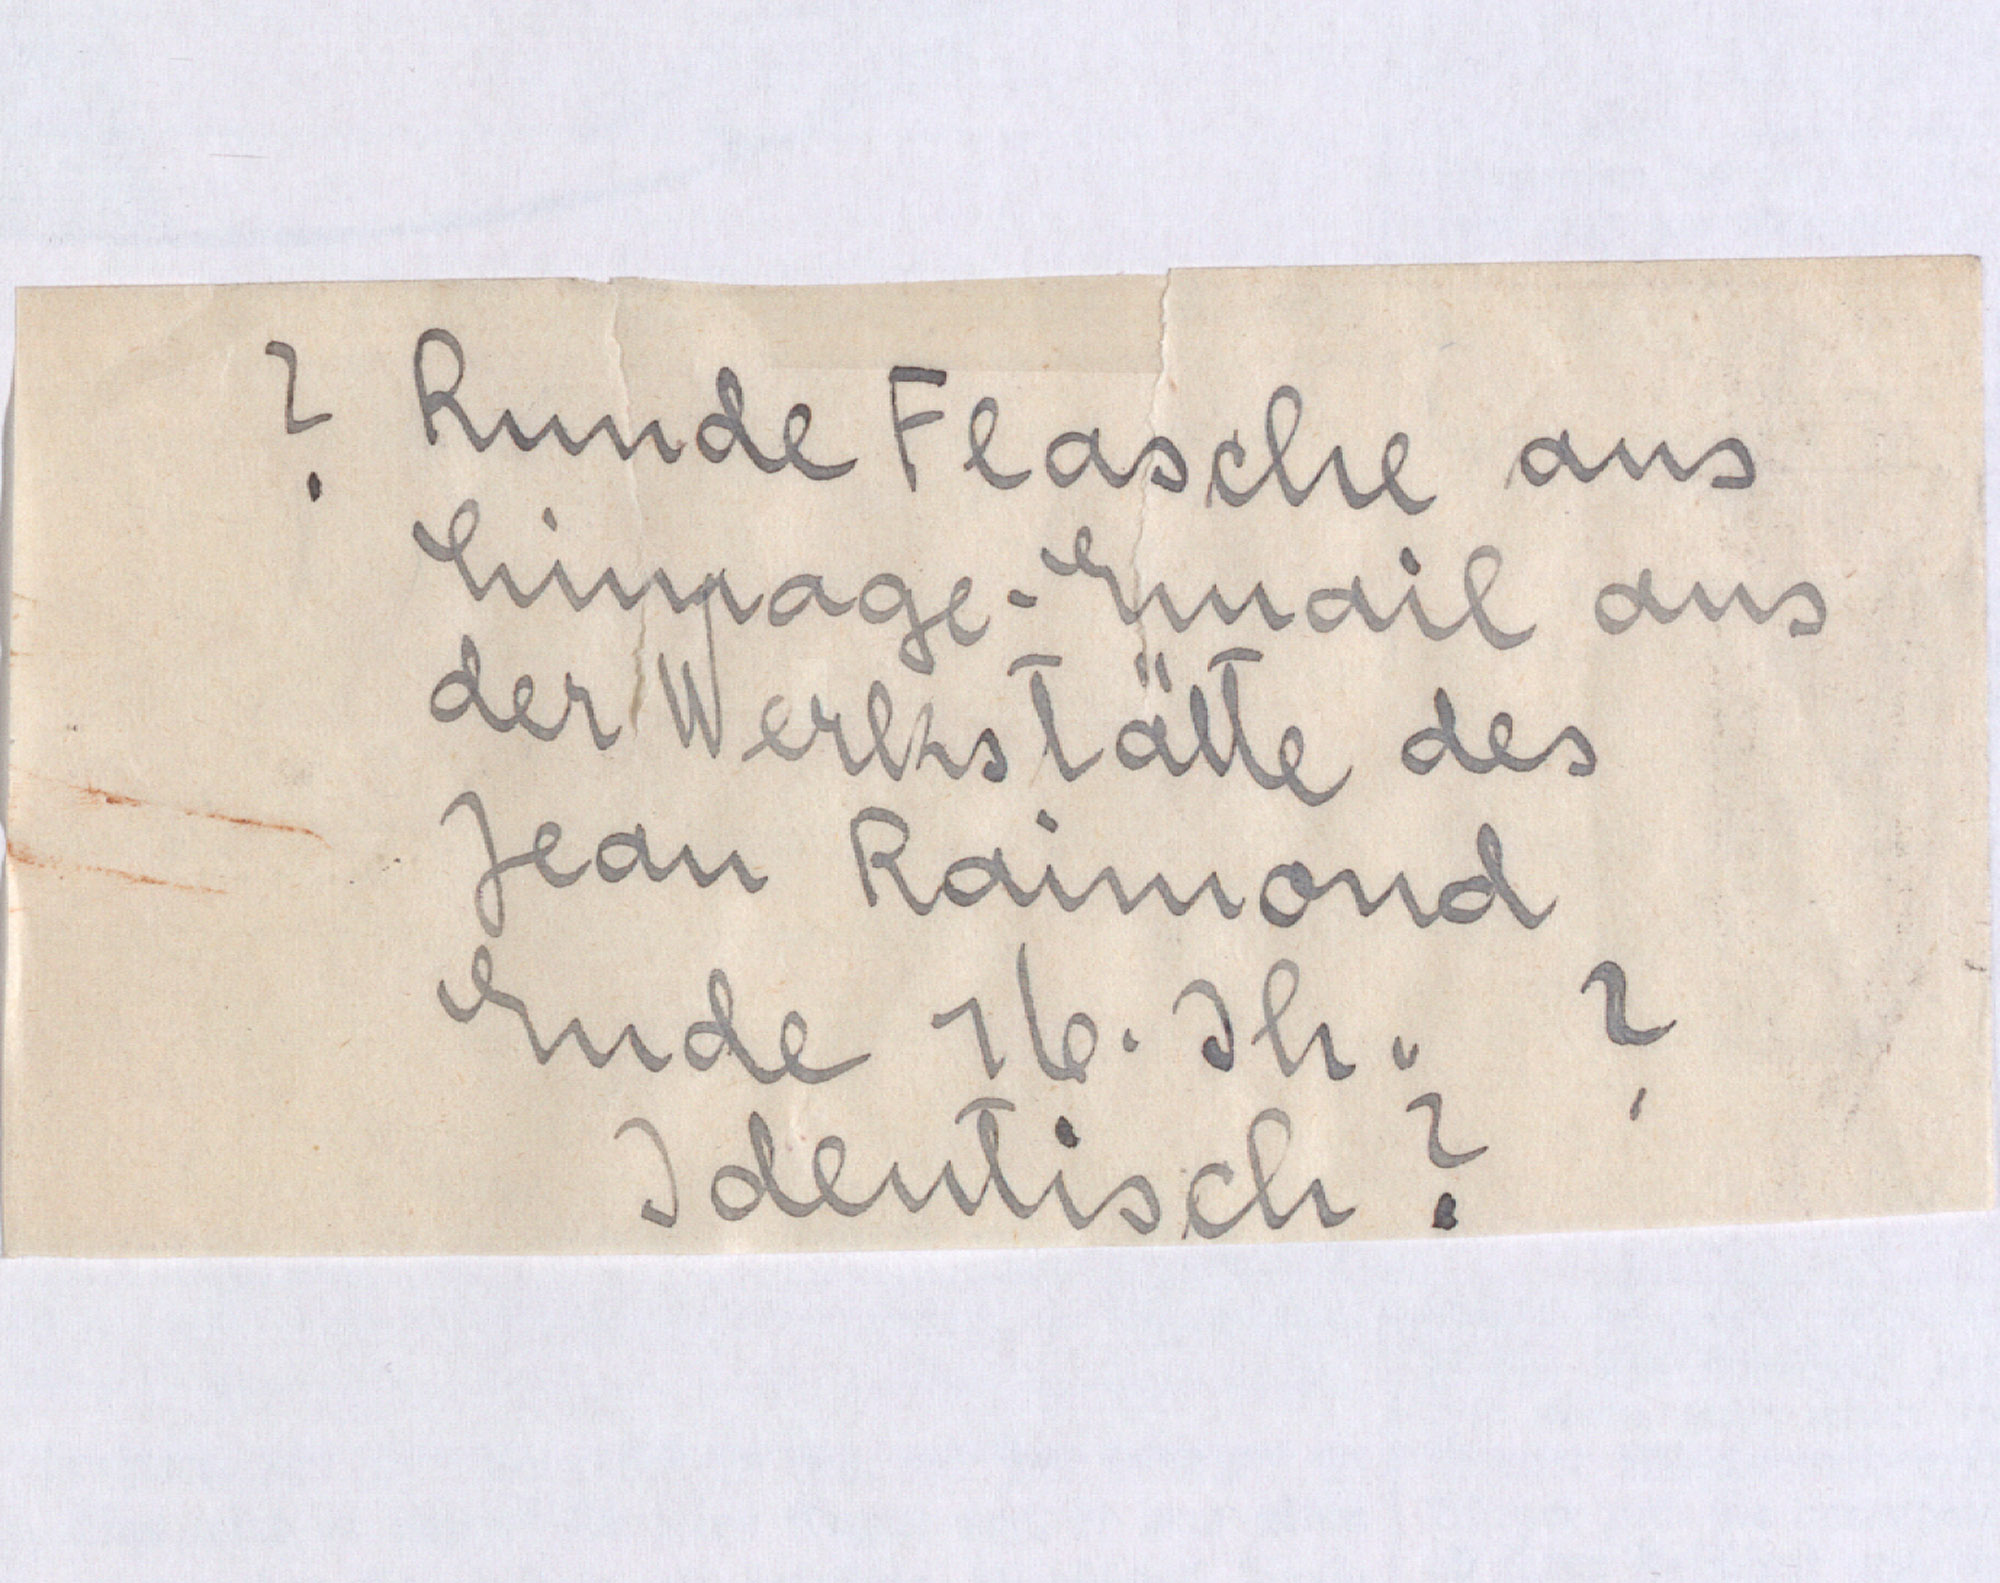 ? Runde Flasche aus
Limpage-Email aus
der Werkstätte des
Jean Raimond
Ende 16. Jh. ?
Identisch?